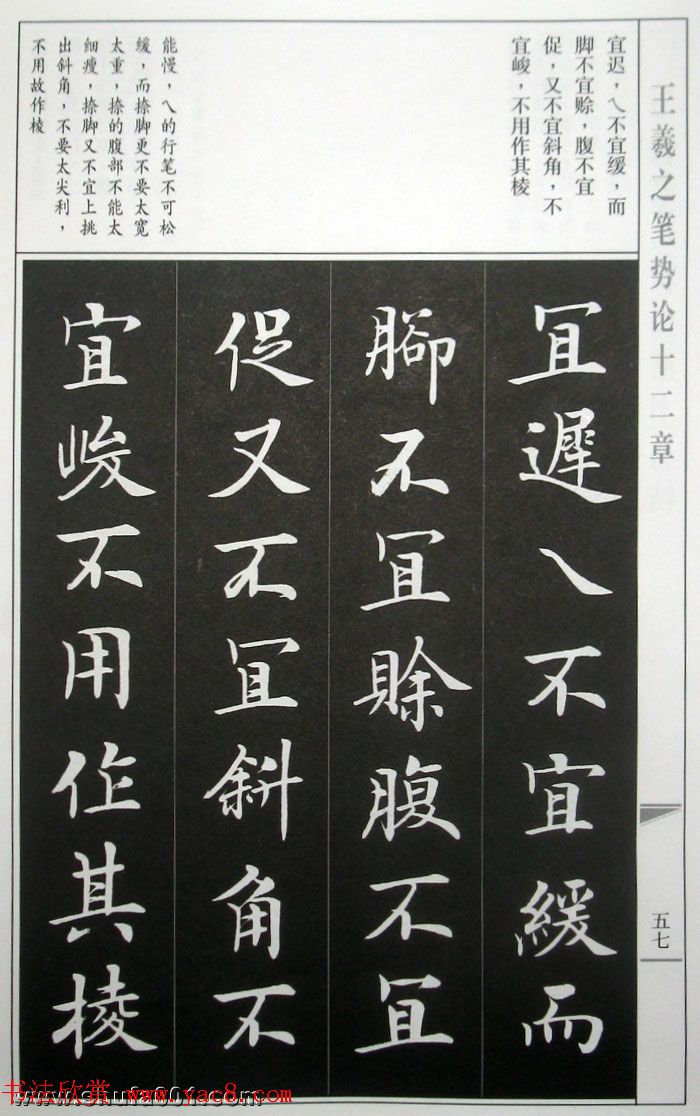 王羲之笔势论十二章
五七
宜迟,乀不宜缓,而
脚不宜赊,腹不宜
促,又不宜斜角,不
宜峻,不用作其棱
能慢,乀的行笔不可松
缓,而捺脚更不要太宽
太重,捺的腹部不能太
细瘦,捺脚又不宜上挑
出斜角,不要太尖利,
不用故作棱
冝遲乀不宜緩而
腳不冝賖腹不冝
促又不冝斜角不
宜峻不用作其棱
书法欣赏 www.yac8.com